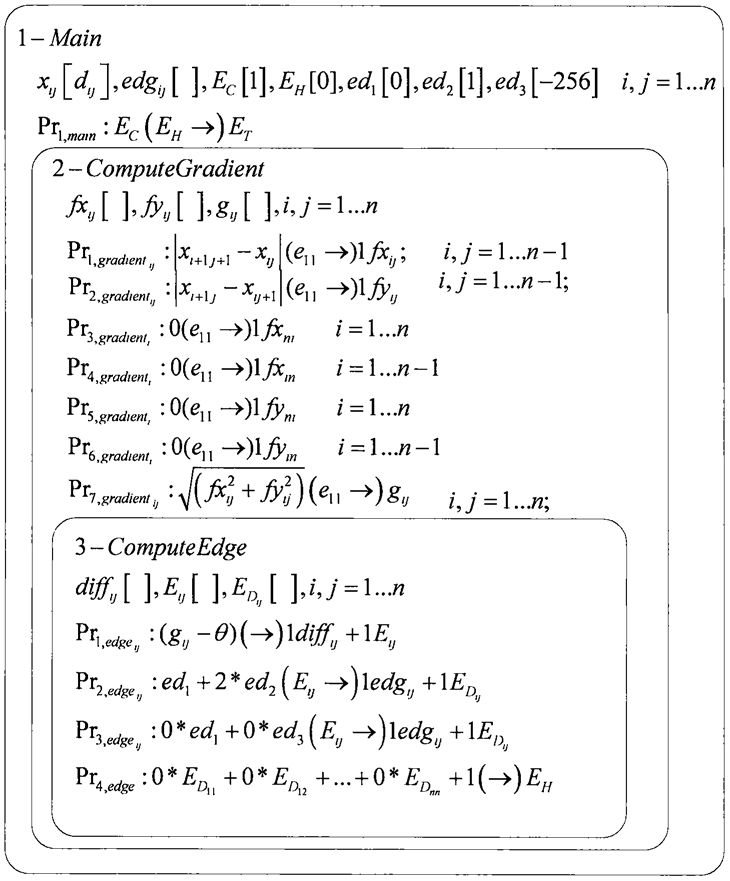 1 – Main
x_ij [d_ij], edg_ij [ ], E_C [1], E_H [0], ed_1 [0], ed_2 [1], ed_3 [−256] i, j = 1...n
Pr_1,main : E_C (E_H →) E_T
2 – ComputeGradient
fx_ij [ ], fy_ij [ ], g_ij [ ], i, j = 1...n
Pr_1,gradient_ij : |x_i+1j+1 − x_ij| (e_11 →) 1 fx_ij; i, j = 1...n−1
Pr_2,gradient_ij : |x_i+1j − x_ij+1| (e_11 →) 1 fy_ij i, j = 1...n−1;
Pr_3,gradient_i : 0(e_11 →) 1 fx_ni i = 1...n
Pr_4,gradient_i : 0(e_11 →) 1 fx_in i = 1...n−1
Pr_5,gradient_i : 0(e_11 →) 1 fy_ni i = 1...n
Pr_6,gradient_i : 0(e_11 →) 1 fy_in i = 1...n−1
Pr_7,gradient_ij : √(fx_ij^2 + fy_ij^2) (e_11 →) g_ij i, j = 1...n;
3 – ComputeEdge
diff_ij [ ], E_ij [ ], E_D_ij [ ], i, j = 1...n
Pr_1,edge_ij : (g_ij − θ)(→) 1diff_ij + 1E_ij
Pr_2,edge_ij : ed_1 + 2 * ed_2 (E_ij →) 1edg_ij + 1E_D_ij
Pr_3,edge_ij : 0 * ed_1 + 0 * ed_3 (E_ij →) 1edg_ij + 1E_D_ij
Pr_4,edge : 0 * E_D_11 + 0 * E_D_12 + ... + 0 * E_D_nn + 1(→) E_H